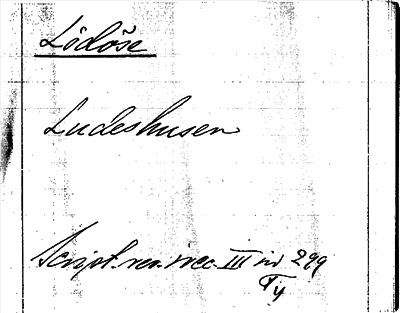 Lödöse
Ludeshusen
Script. rer. svec. III s. 299
Ty